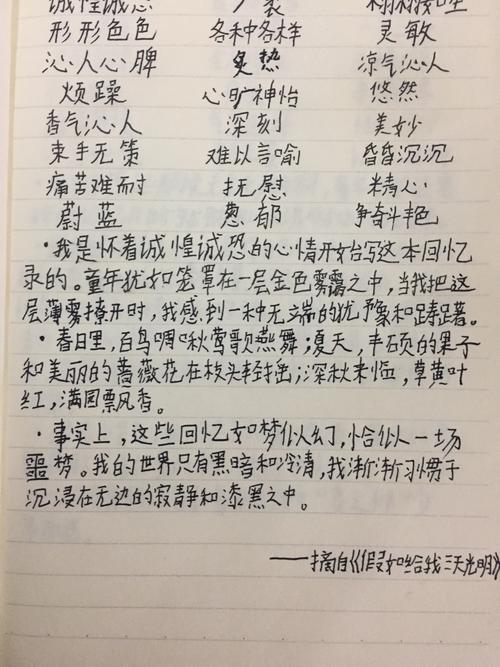 诚惶诚恐
形形色色 各种各样 灵敏
沁人心脾 炙热 凉气沁人
烦躁 心旷神怡 悠然
香气沁人 深刻 美妙
束手无策 难以言喻 昏昏沉沉
·痛苦难耐 抚慰 精心
蔚蓝 葱郁 争奇斗艳
·我是怀着诚惶诚恐的心情开始写这本回忆
录的。童年犹如笼罩在一层金色雾霭之中,当我把这
层薄雾撩开时,我感到一种无端的犹豫和踌躇。
·春日里,百鸟啁啾莺歌燕舞;夏天,丰硕的果子
和美丽的蔷薇花在枝头
红,满园飘香。
·事实上,这些回忆如梦似幻,恰似一场
噩梦。我的世界只有黑暗和冷清,我渐渐习惯于
沉浸在无边的寂静和漆黑之中。
——摘自《假如给我三天光明》